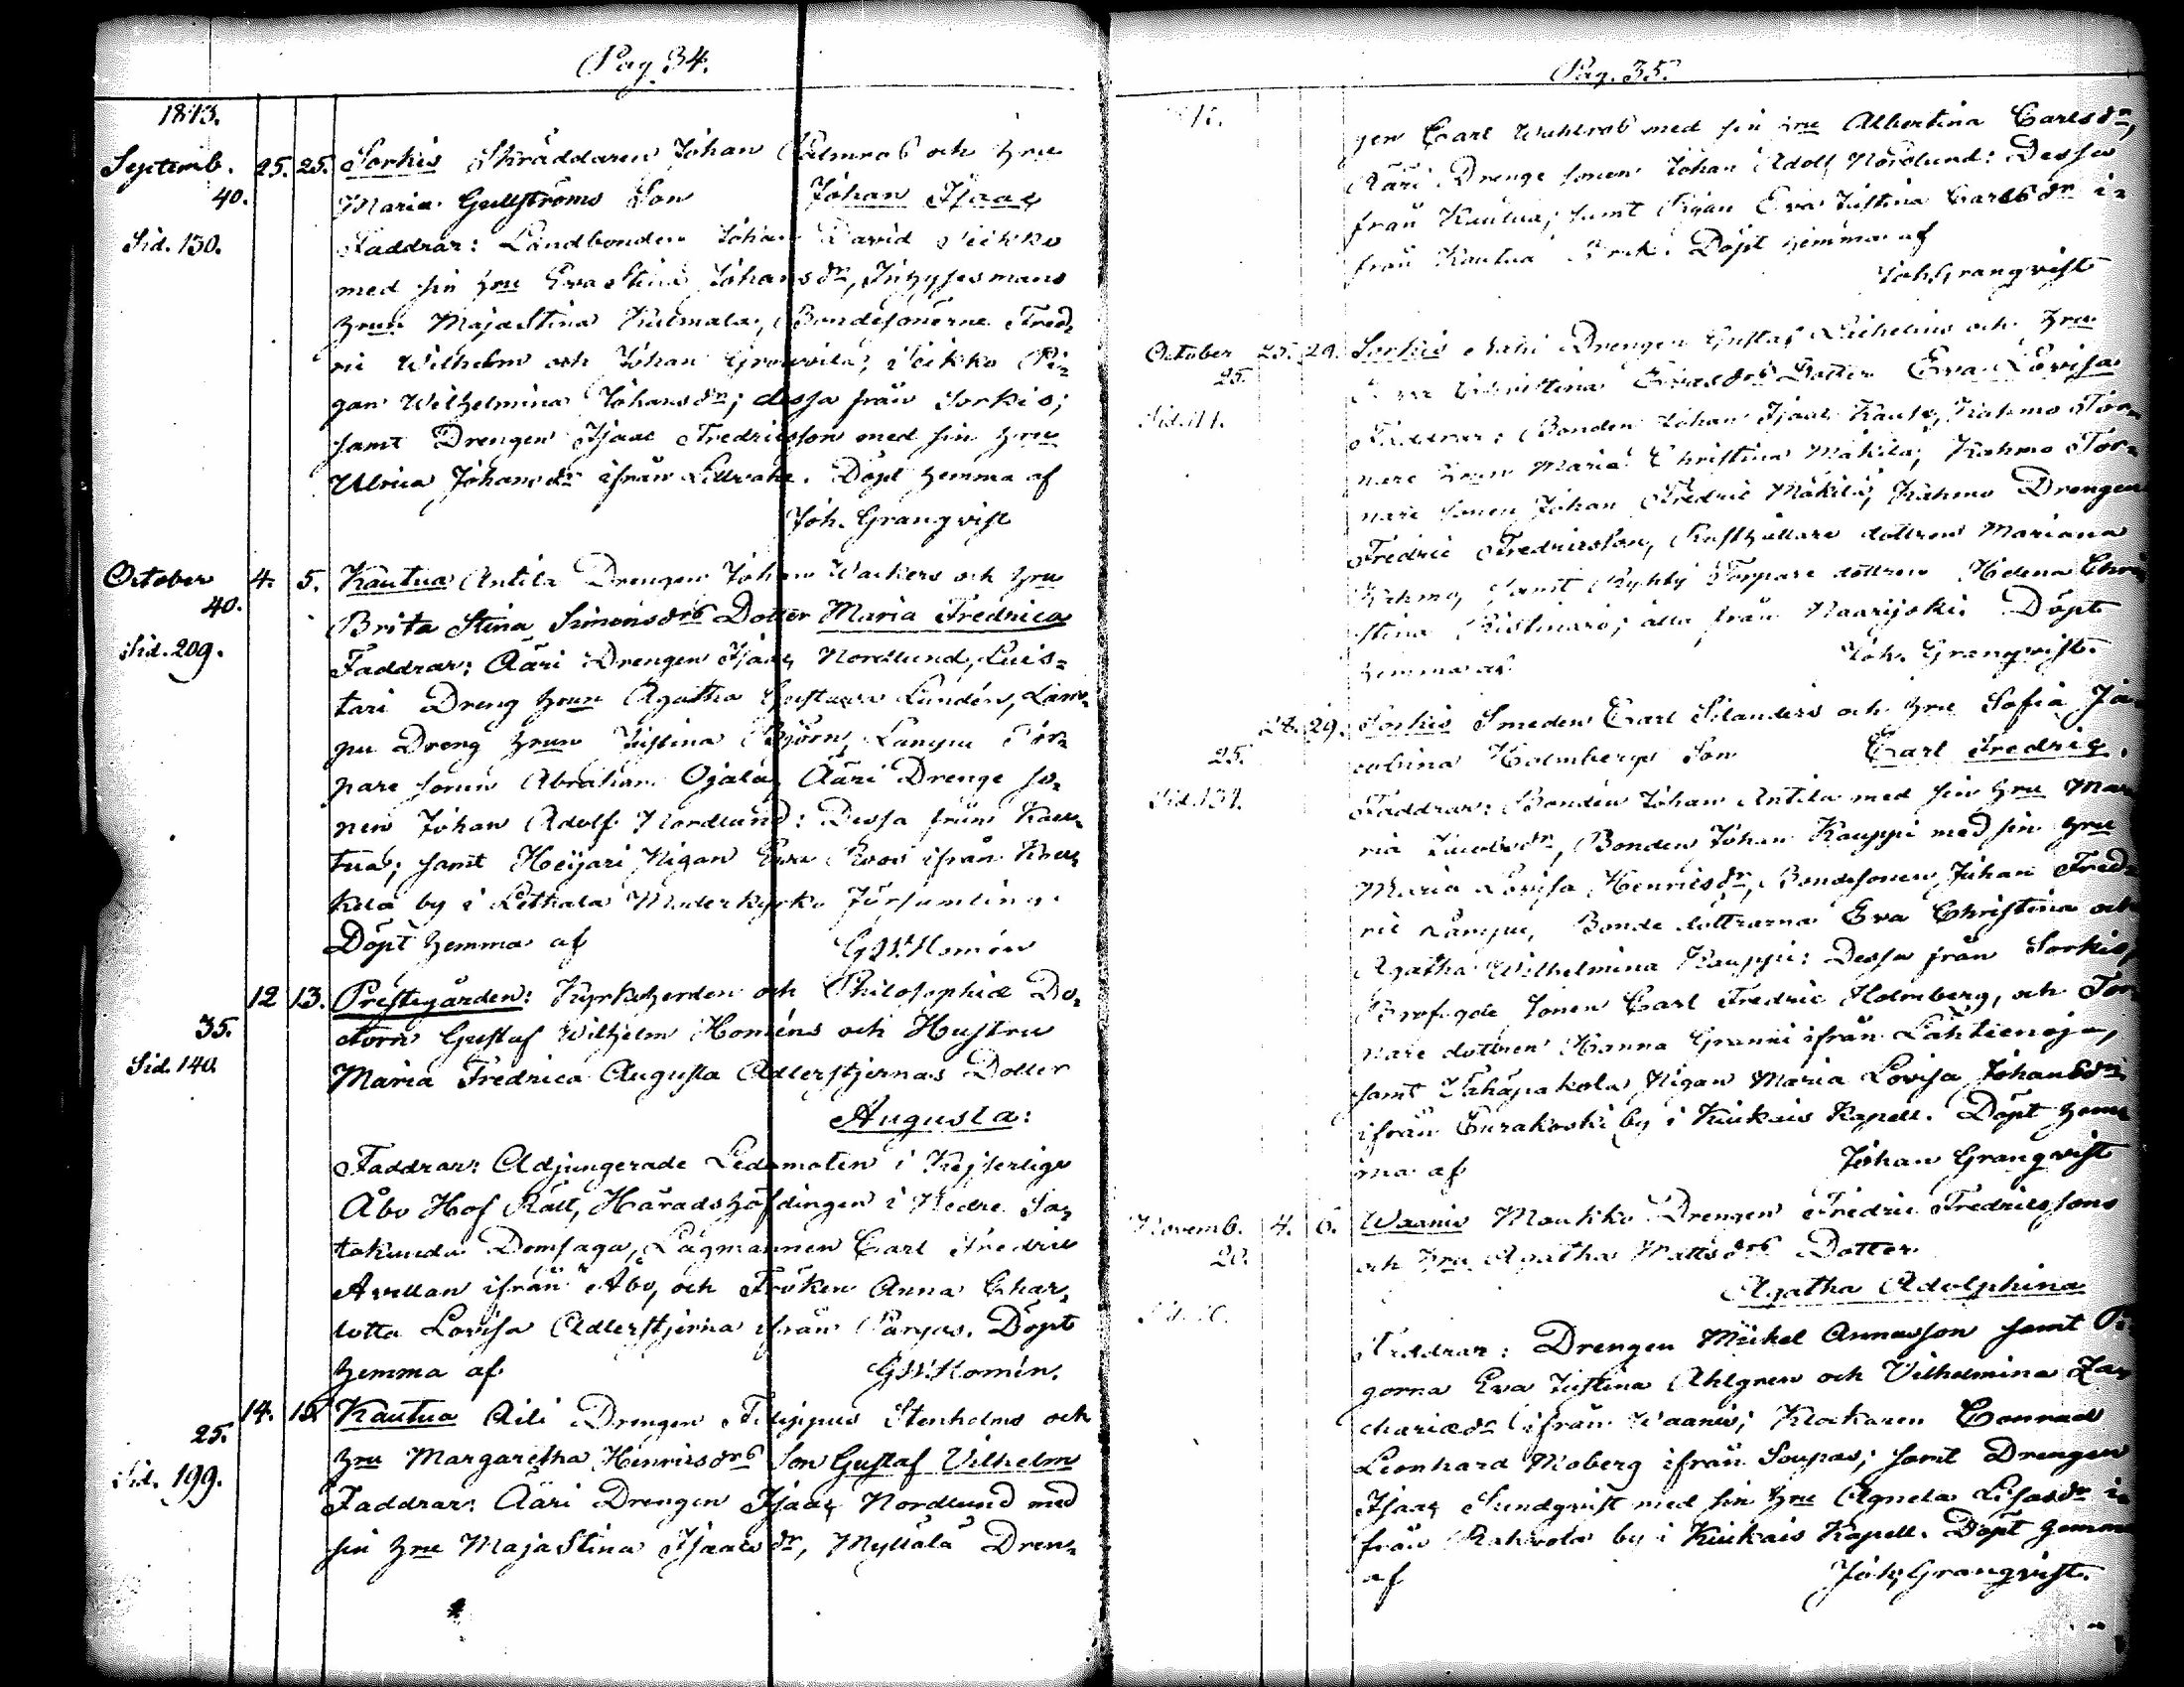 Pag. 34.
1843.
Septemb. 25. 25. Sorkis Skräddaren Johan Palmros och hru
40. Maria Gullströms Son Johan Isaac
Sid. 130. Faddrar: Landbonden Johan David
med sin hru Eva Stina Johansdr, Inhysesmans
hrun Maja Stina Kulmala, Bondesönerne Fred-
ric Wilhelm och Johan Pi-
gan Wilhelmina Johansdr; dessa från Sorkis;
samt Drengen Isaac Fredricsson med sin hru
Ulrica Johansdr ifrån . Döpt hemma af
Joh. Granqvist
October 4. 5. Kautua Antila Drengen Johan Wackers och hru
40. Brita Stina Simonsdrs Dotter Maria Fredrica
Sid. 209. Faddrar: Ääri Drengen Isaac Nordlund, Luis-
tari Dreng hrun Agatha Gustava Lundén, Lam-
pu Dreng hrun Justina Björn, Lampu Tor-
pare sonen Abraham Ojala, Ääri Drenge so-
nen Johan Adolf Nordlund: Dessa från Kau-
tua; samt Heijari Pigan Eva ifrån
by i Lethala Moderkyrko Församling.
Döpt hemma af G.W. Homén
12 13. Prestegården: Kyrkoherden och Philosophiæ Do-
35. ctorn Gustaf Wilhelm Homéns och Hustru
Sid. 140. Maria Fredrica Augusta Adlerstjernas Dotter
Augusta:
Faddrar: Adjungerade Ledamoten i Kejserliga
Åbo Hof Rätt, Häradshöfdingen i Nedre Sa-
takunda Domsaga, Lagmannen Carl Fredric
Avellan ifrån Åbo, och Fröken Anna Char-
lotta Lovisa Adlerstjerna ifrån Pargas. Döpt
hemma af G.W. Homén.
14. 15. Kautua Äili Drengen Filippus Stenholms och
25. hru Margaretha Henricsdrs Son Gustaf Vilhelm
Sid. 199. Faddrar: Ääri Drengen Isaac Nordlund med
sin hru Maja Stina Isaacsdr, Myllälä Dren-
Pag. 35.
gen Carl Wahlros med sin hru Albertina Carlsdr,
Ääri Drenge sonen Johan Adolf Nordlund: Dessa
från Kautua; samt Pigan Eva Justina Carlsdr i-
från Kautua Bruk. Döpt hemma af
Joh. Granqvist
October 25. 29. Sorkis Drengen Gustaf och hru
25. Christina Dotter Eva Lovisa
Faddrar: Bonden Johan Isaac , Kahmo Tor-
pare hrun Maria Christina Mäkilä, Kahmo Tor-
pare sonen Johan Fredric Mäkilä, Kahmo Drengen
Fredric Fredricsson, Rusthållare dottren Mariana
Kahmo, samt Torpare dottren Helena Chri-
stina ; alla från Naarijoki. Döpt
hemma af Joh. Granqvist.
28. 29. Sorkis Smeden Carl Silanders och hru Sofia Ja-
25. cobina Holmbergs Son Carl Fredric.
Sid. 131. Faddrar: Bonden Johan Antila med sin hru Ma-
ria Jacobsdr, Bonden Johan Kauppi med sin hru
Maria Lovisa Henricsdr, Bondesonen Johan Fred-
ric Lampu, Bonde döttrarna Eva Christina och
Agatha Wilhelmina Kauppi: Dessa från Sorkis,
Brofogde sonen Carl Fredric Holmberg, och Tor-
pare dottren Hanna Granni ifrån Lähtienoja,
samt Pigan Maria Lovisa Johansdr
ifrån Eurakoski by i Kiukais Kapell. Döpt hem-
ma af Johan Granqvist
Novemb. 4. 6. Waanis Maukko Drengen Fredric Fredricssons
20. och hru Agatha Mattsdrs Dotter
Agatha Adolphina
Faddrar: Drengen Mickel Annasson samt Pi-
gorna Eva Justina Ahlgren och Vilhelmina Za-
chariædr ifrån Waanis; Klockaren Conrad
Leonhard Moberg ifrån Soupas; samt Drengen
Isaac Sundqvist med sin hru Agneta Lisasdr i-
från by i Kiukais Kapell. Döpt hemma
af Joh. Granqvist.